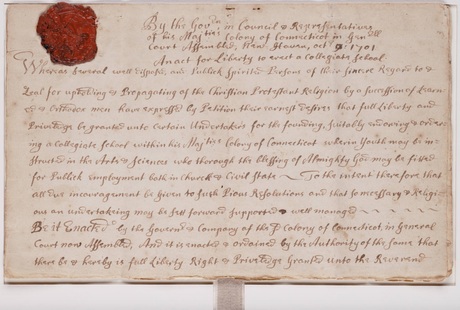 By the Govrn in Council & Representatives
of his Majties Colony of Connecticut in Genrll
Court Assembled, New Haven, octr 9: 1701
An act for Liberty to erect a Collegiate School
Whereas several well disposed, and Publick Spirited Persons of their sincere Regard to &
Zeal for upholding & Propagating of the Christian Protestant Religion by a succession of Learn
ed & Orthodox men have expressed by Petition their earnest desires that full Liberty and
Priveledge be granted unto Certain Undertakers for the founding, suitably endowing & order
ing a Collegiate School within his Majties Colony of Connecticut wherein Youth may be in
structed in the Arts & Sciences who thorough the blessing of Almighty God may be fitted
for Publick employment both in Church & Civil State To the intent therefore that
all due incouragement be given to such Pious Resolutions and that so necessary & Religi
ous an undertaking may be set forward supported & well managed
Be it Enacted by the Governr & Company of the sd Colony of Connecticut, in General
Court now Assembled, And it is enacted & ordained by the Authority of the same that
there be & hereby is full Liberty Right & Priveledge Granted unto the Reverend